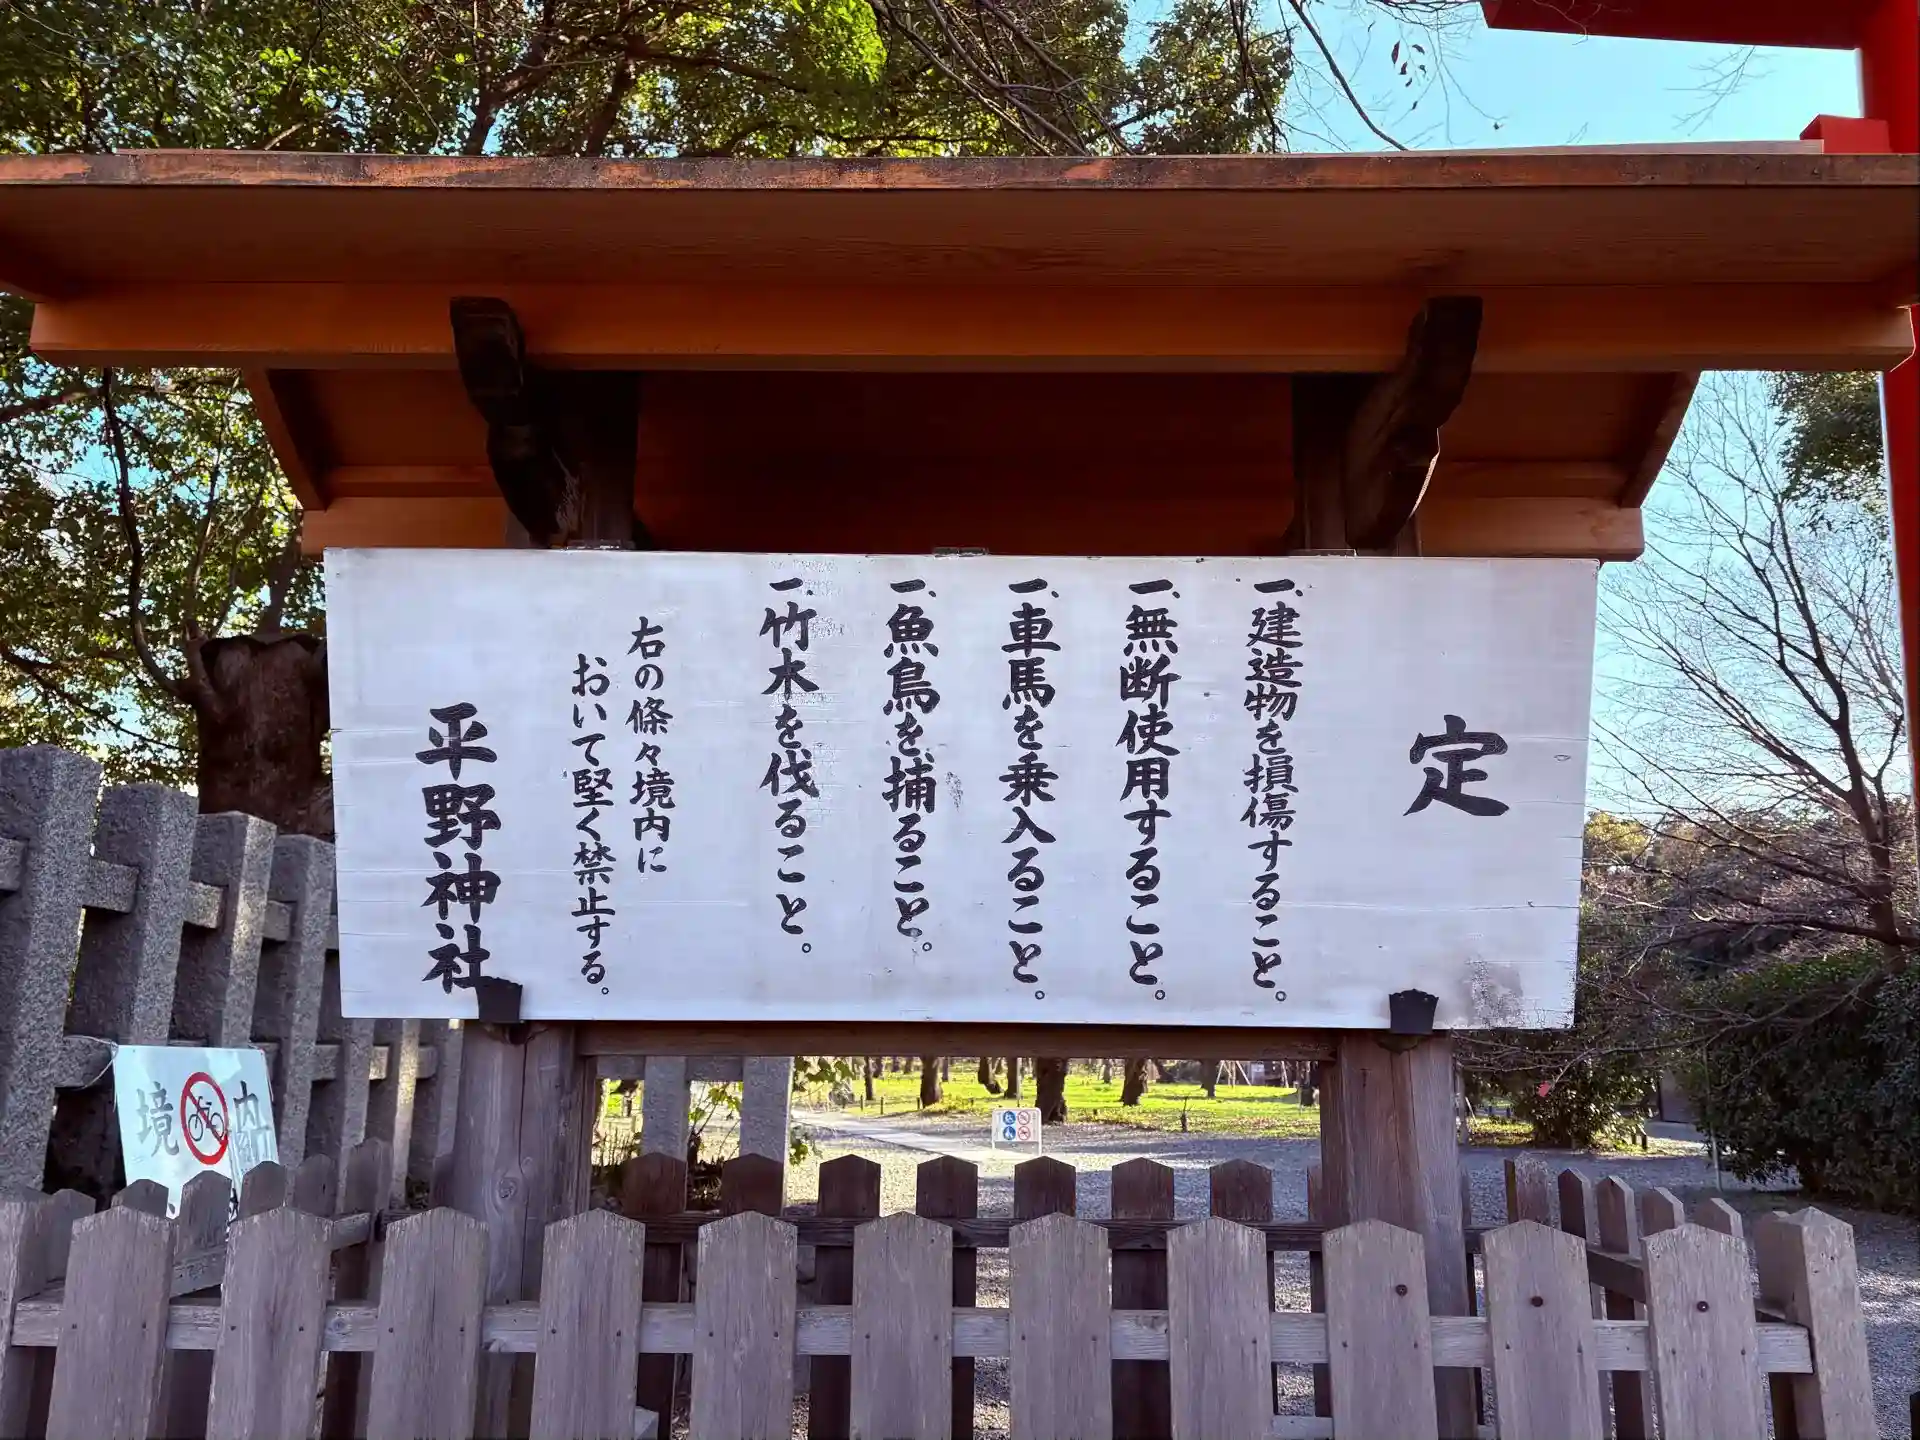 定
一、建造物を損傷すること。
一、無断使用すること。
一、車馬を乗入ること。
一、魚鳥を捕ること。
一、竹木を伐ること。
右の條々境内に
おいて堅く禁止する。
平野神社
境内